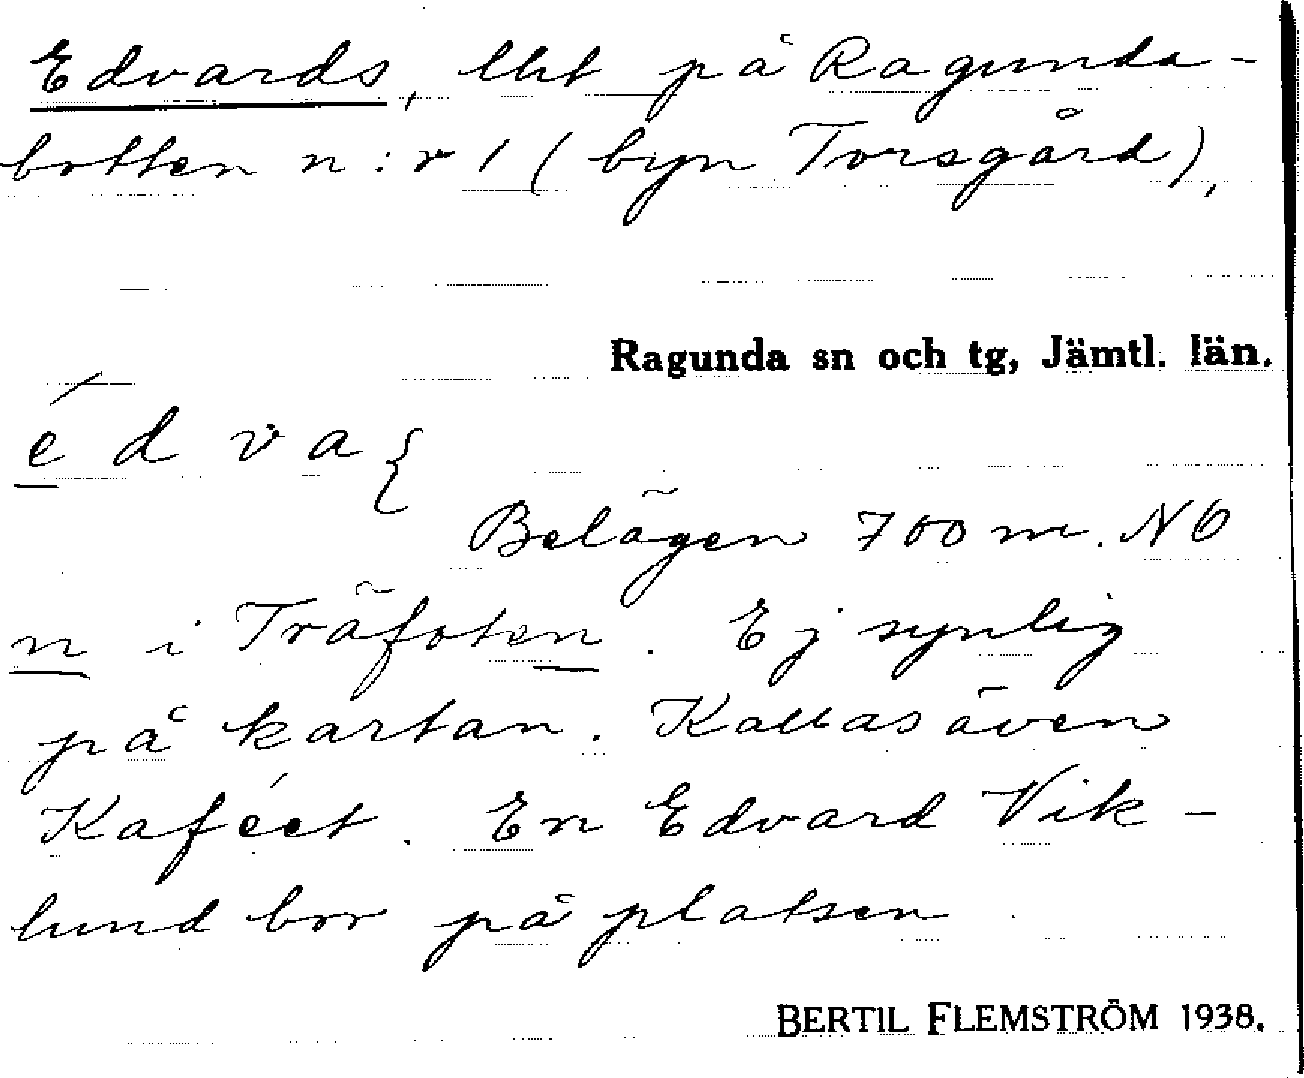 Edvards, lht på Ragunda-
botten n:r 1 (byn Torsgård),
Ragunda sn och tg, Jämtl. län.
é d v a
Belägen 700 m. NO
n i Träfoten. Ej synlig
på kartan. Kallas även
Kaféet. En Edvard Vik-
lund bor på platsen
BERTIL FLEMSTRÖM 1938.